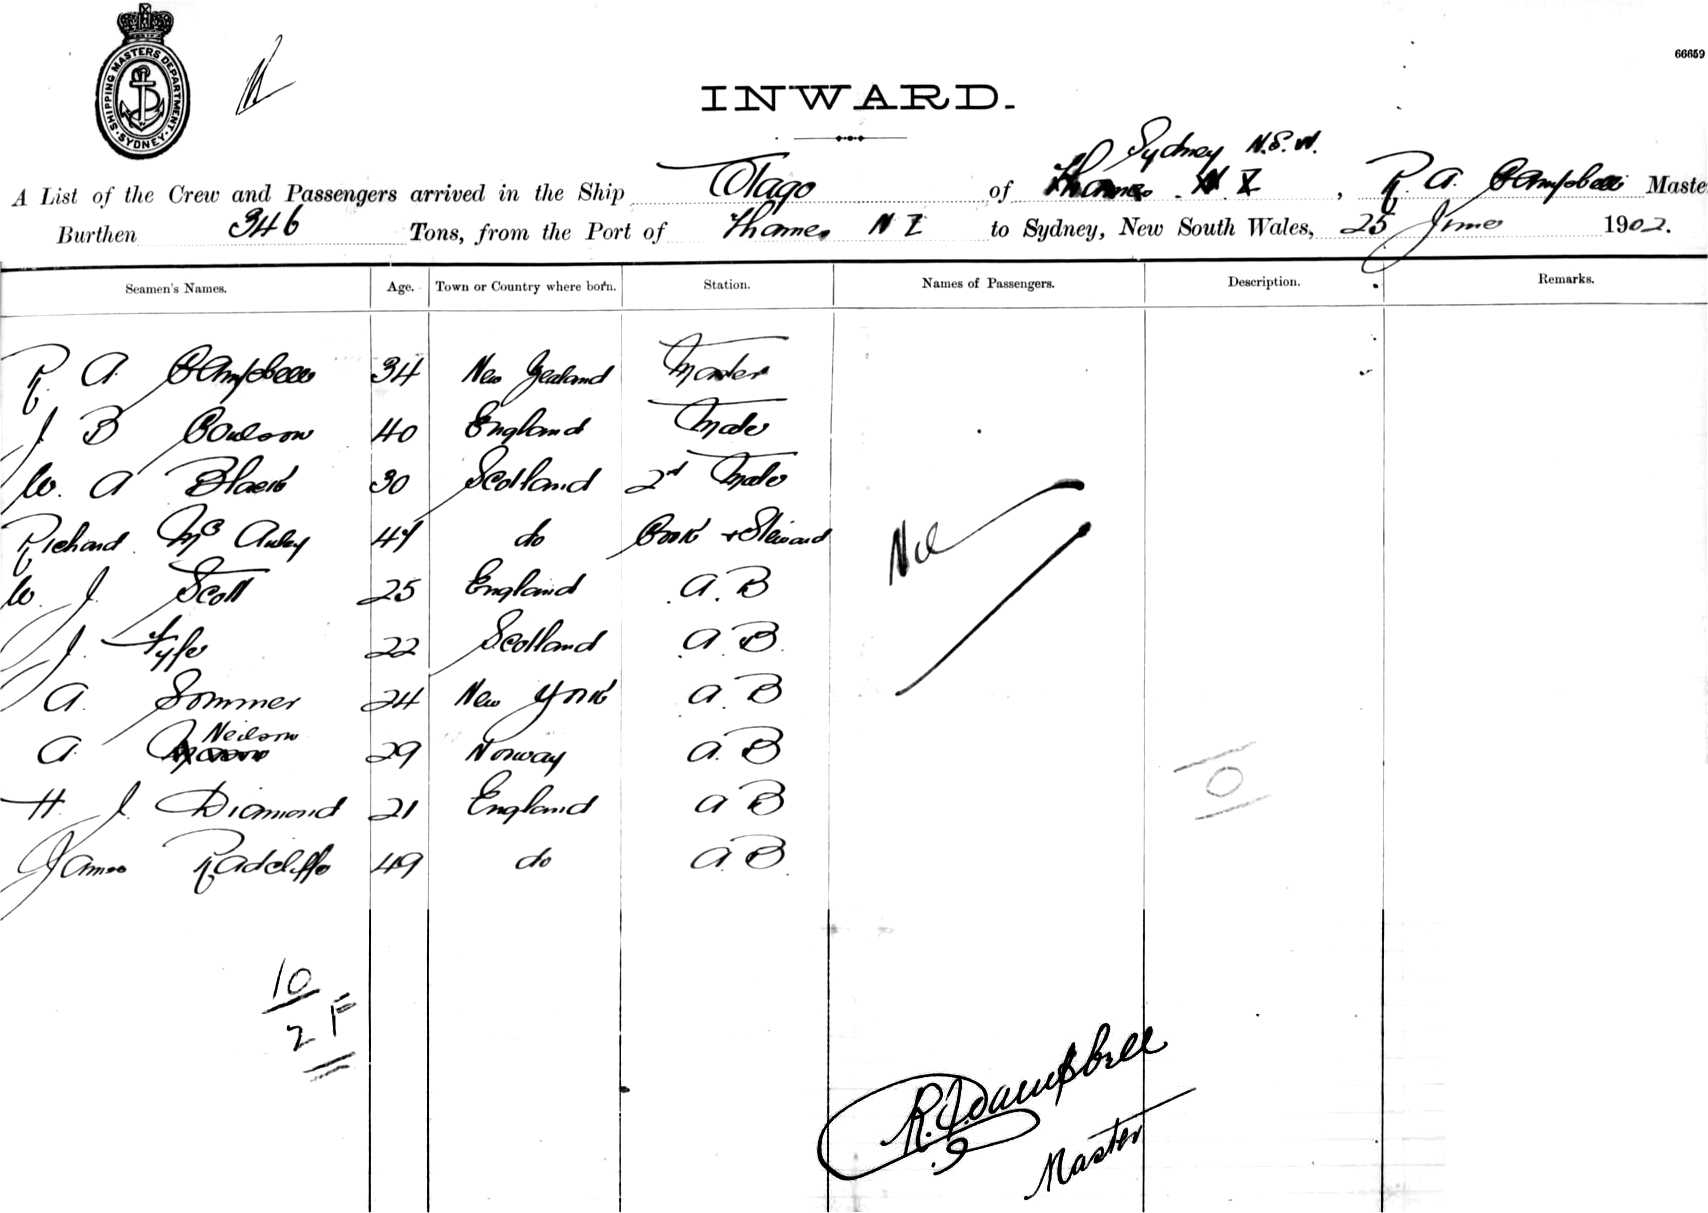 SHIPPING MASTERS DEPARTMENT
SYDNEY
66659
INWARD.
Sydney N.S.W.
A List of the Crew and Passengers arrived in the Ship Otago of Thames N Z, R. A. Campbell Maste
Burthen 346 Tons, from the Port of Thames N Z to Sydney, New South Wales, 25 June 1902.
Seamen's Names. Age. Town or Country where born. Station. Names of Passengers. Description. Remarks.
R. A. Campbell 34 New Zealand Master
J B Coulson 40 England Mate
W. A Black 30 Scotland 2nd Mate
Richard Mc Auley 47 do Cook + Steward
Nil
W. J. Scott 25 England A.B
J. Fyfe 22 Scotland A.B
A. Sommer 24 New York A B
Neilson
A. 29 Norway A.B
H. J. Diamond 21 England A B
James Radcliffe 49 do A B
10
10
2 F
R. A. Campbell
Master